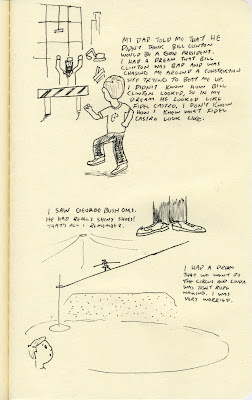 MY DAD TOLD ME THAT HE
DIDN'T THINK BILL CLINTON
WOULD BE A GOOD PRESIDENT.
I HAD A DREAM THAT BILL
CLINTON WAS BAD AND WAS
CHASING ME AROUND A CONSTRUCTION
SITE TRYING TO BEAT ME UP.
I DIDN'T KNOW HOW BILL
CLINTON LOOKED, SO IN MY
DREAM HE LOOKED LIKE
FIDEL CASTRO. I DON'T KNOW
HOW I KNEW WHAT FIDEL
CASTRO LOOK LIKE.
I SAW GEORGE BUSH ONCE.
HE HAD REALLY SHINY SHOES!
THAT'S ALL I REMEMBER.
I HAD A DREAM
THAT WE WENT TO
THE CIRCUS AND LINDA
WAS TIGHT ROPE
WALKING. I WAS
VERY WORRIED.